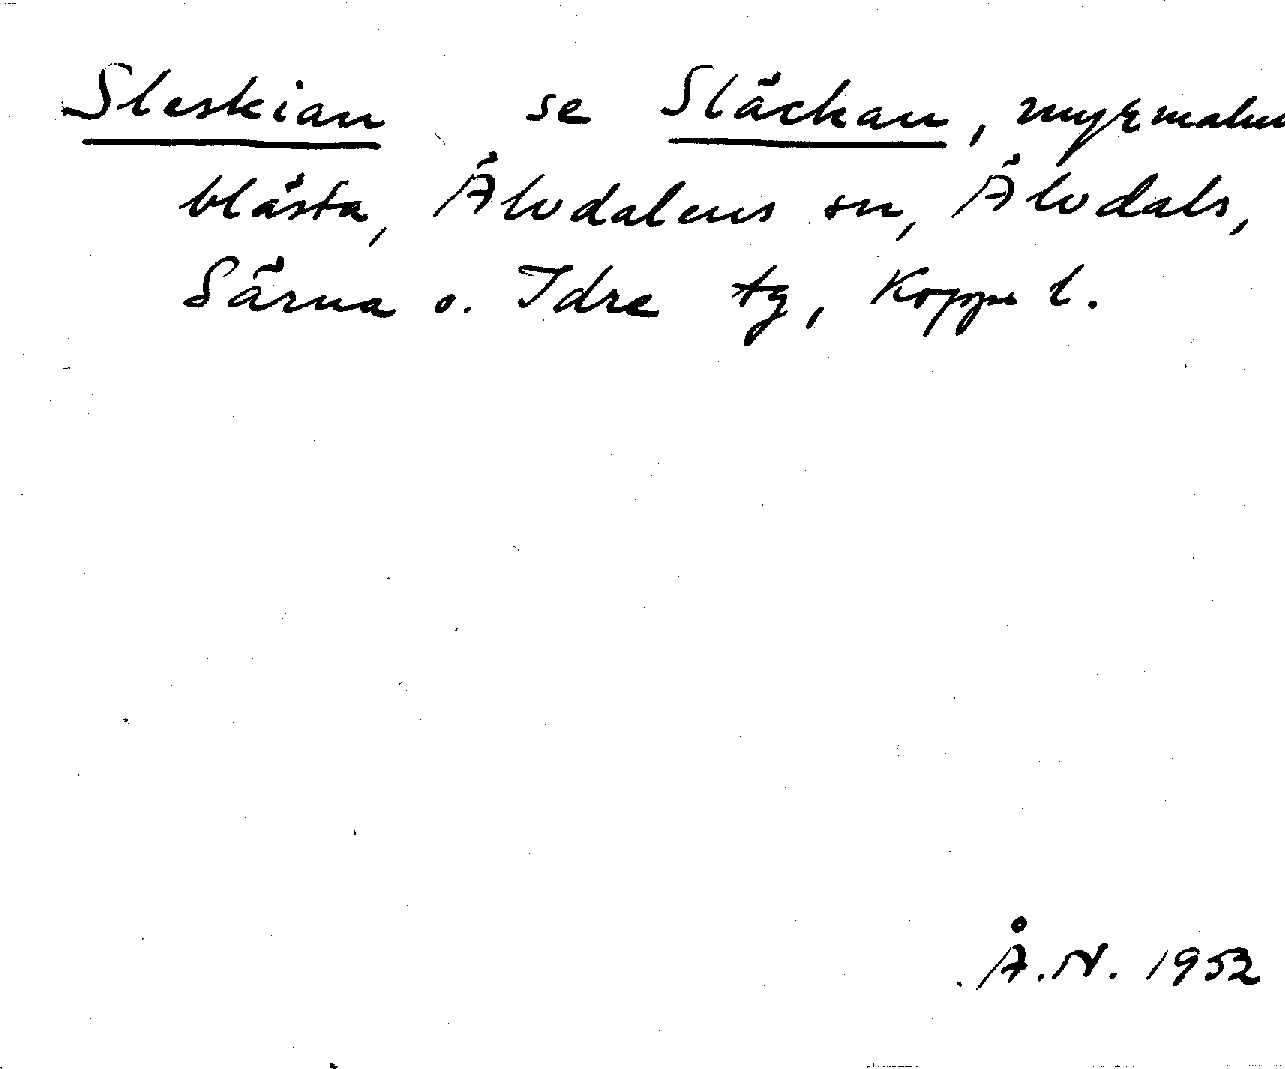 Sleskian se Släckan, myrmalms
blästa, Älvdalens sn, Älvdals,
Särna o. Idre tg, Kopp. l.
Å.N. 1952